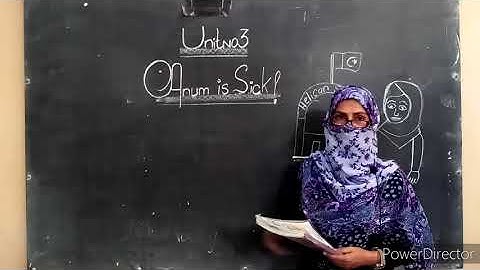 Unit no 3
Anum is Sick!
Helicon
PowerDirector